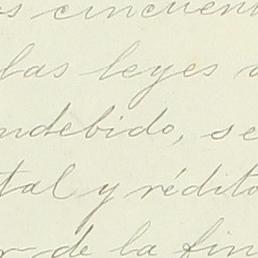 s cincuent
las leyes a
ndebido, se
tal y rédito
r de la fin